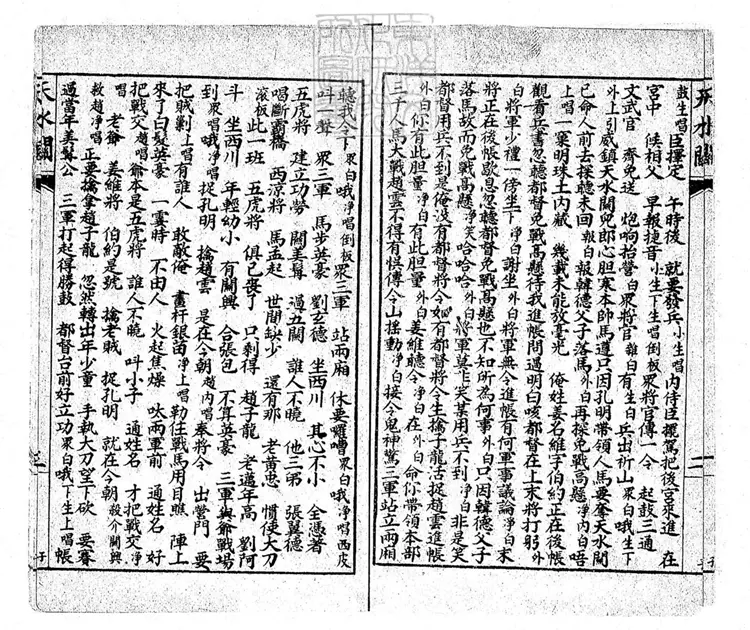 天水關
鼓生唱 臣擇定 午時後 就要發兵小生唱 內侍臣擺駕把後宮來進 在
宮中 候相父 早報捷音小生下生唱倒板眾將官傳一令 起鼓三通
文武官 齊免送 炮响抬營白眾將官雜白有生白兵出祈山眾白哦生下
外上引威鎮天水關兜郎心胆寒本帥馬遵只因孔明帶領人馬要奪天水關
已命人前去探聽未回報白報韓德父子落馬外白再探免戰高懸淨內白唔
上唱一棄明珠土內藏 幾載未能放毫光 俺姓姜名維字伯約正在後帳
觀看兵書忽聽都督免戰高懸待我進帳問過明白咳都督在上末將打躬外
白將軍少禮一傍坐下淨白謝坐外白將軍無令進帳有何軍事議論淨白末
將正在後帳歇息忽聽都督免戰高懸也不知所為何事外白只因韓德父子
落馬故而免戰高懸淨笑哈哈哈外白將軍莫非笑某用兵不到淨白非是笑
都督用兵不到是俺沒有都督將令如有都督將令生擒子龍活捉趙雲進帳
外白你有此胆量淨白有此胆量外白姜維聽令淨白在外白命你帶領本部
三千人馬大戰趙雲不得有悞傳令山搖動淨白接令鬼神驚三軍站立兩廂
聽我令下眾白哦淨唱倒板眾三軍 站兩廂 休要囉唣眾白哦淨唱西皮
叫一聲 眾三軍 馬步英豪 劉玄德 坐西川 其心不小 全憑著
五虎將 建立功勞 關美髯 過五關 誰人不曉 他三弟 張翼德
喝斷霸橋 西涼將 馬孟起 世間缺少 還有那 老黃忠 慣使大刀
滾板此一班 五虎將 俱已喪了 只剩得 趙子龍 老邁年高 劉阿
斗 坐西川 年輕幼小 有關興 合張包 不算英豪 三軍與爺戰場
到眾唱哦淨唱捉孔明 擒趙雲 是在今朝趙內唱奉將令 出營門 要
把賊剿上唱有誰人 敢敵俺 畫杆銀苗淨上唱勒住戰馬用目瞧 陣上
來了白髮英豪 一霎時 不由人 火起焦燥 呔兩軍前 通姓名 好
把戰交趙唱爺本是五虎將 誰人不曉 叫小子 通姓名 才把戰交淨
唱 老爺 姜維將 伯約是號 擒老賊 捉孔明 就在今朝殺介關興
敖趙淨唱 正要擒拿趙子龍 忽然轉出年少童 手執大刀望下砍 要賽
過當年美髯公 三軍打起得勝鼓 都督台前好立功眾白哦下生上唱帳
天水關